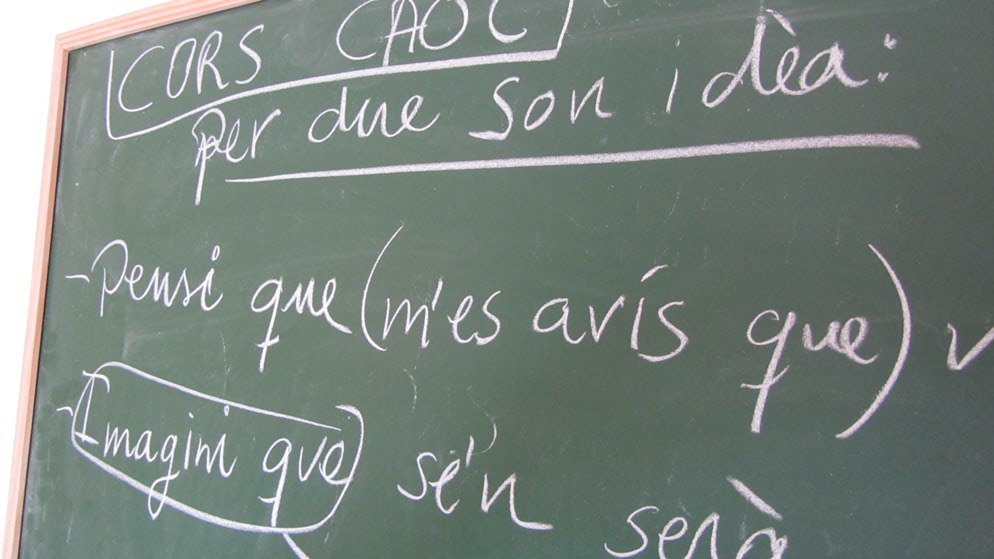 CORS CAOC
per dire son idèa:
-Pensi que (m'es avís que) v
-Imagini que se'n
serà